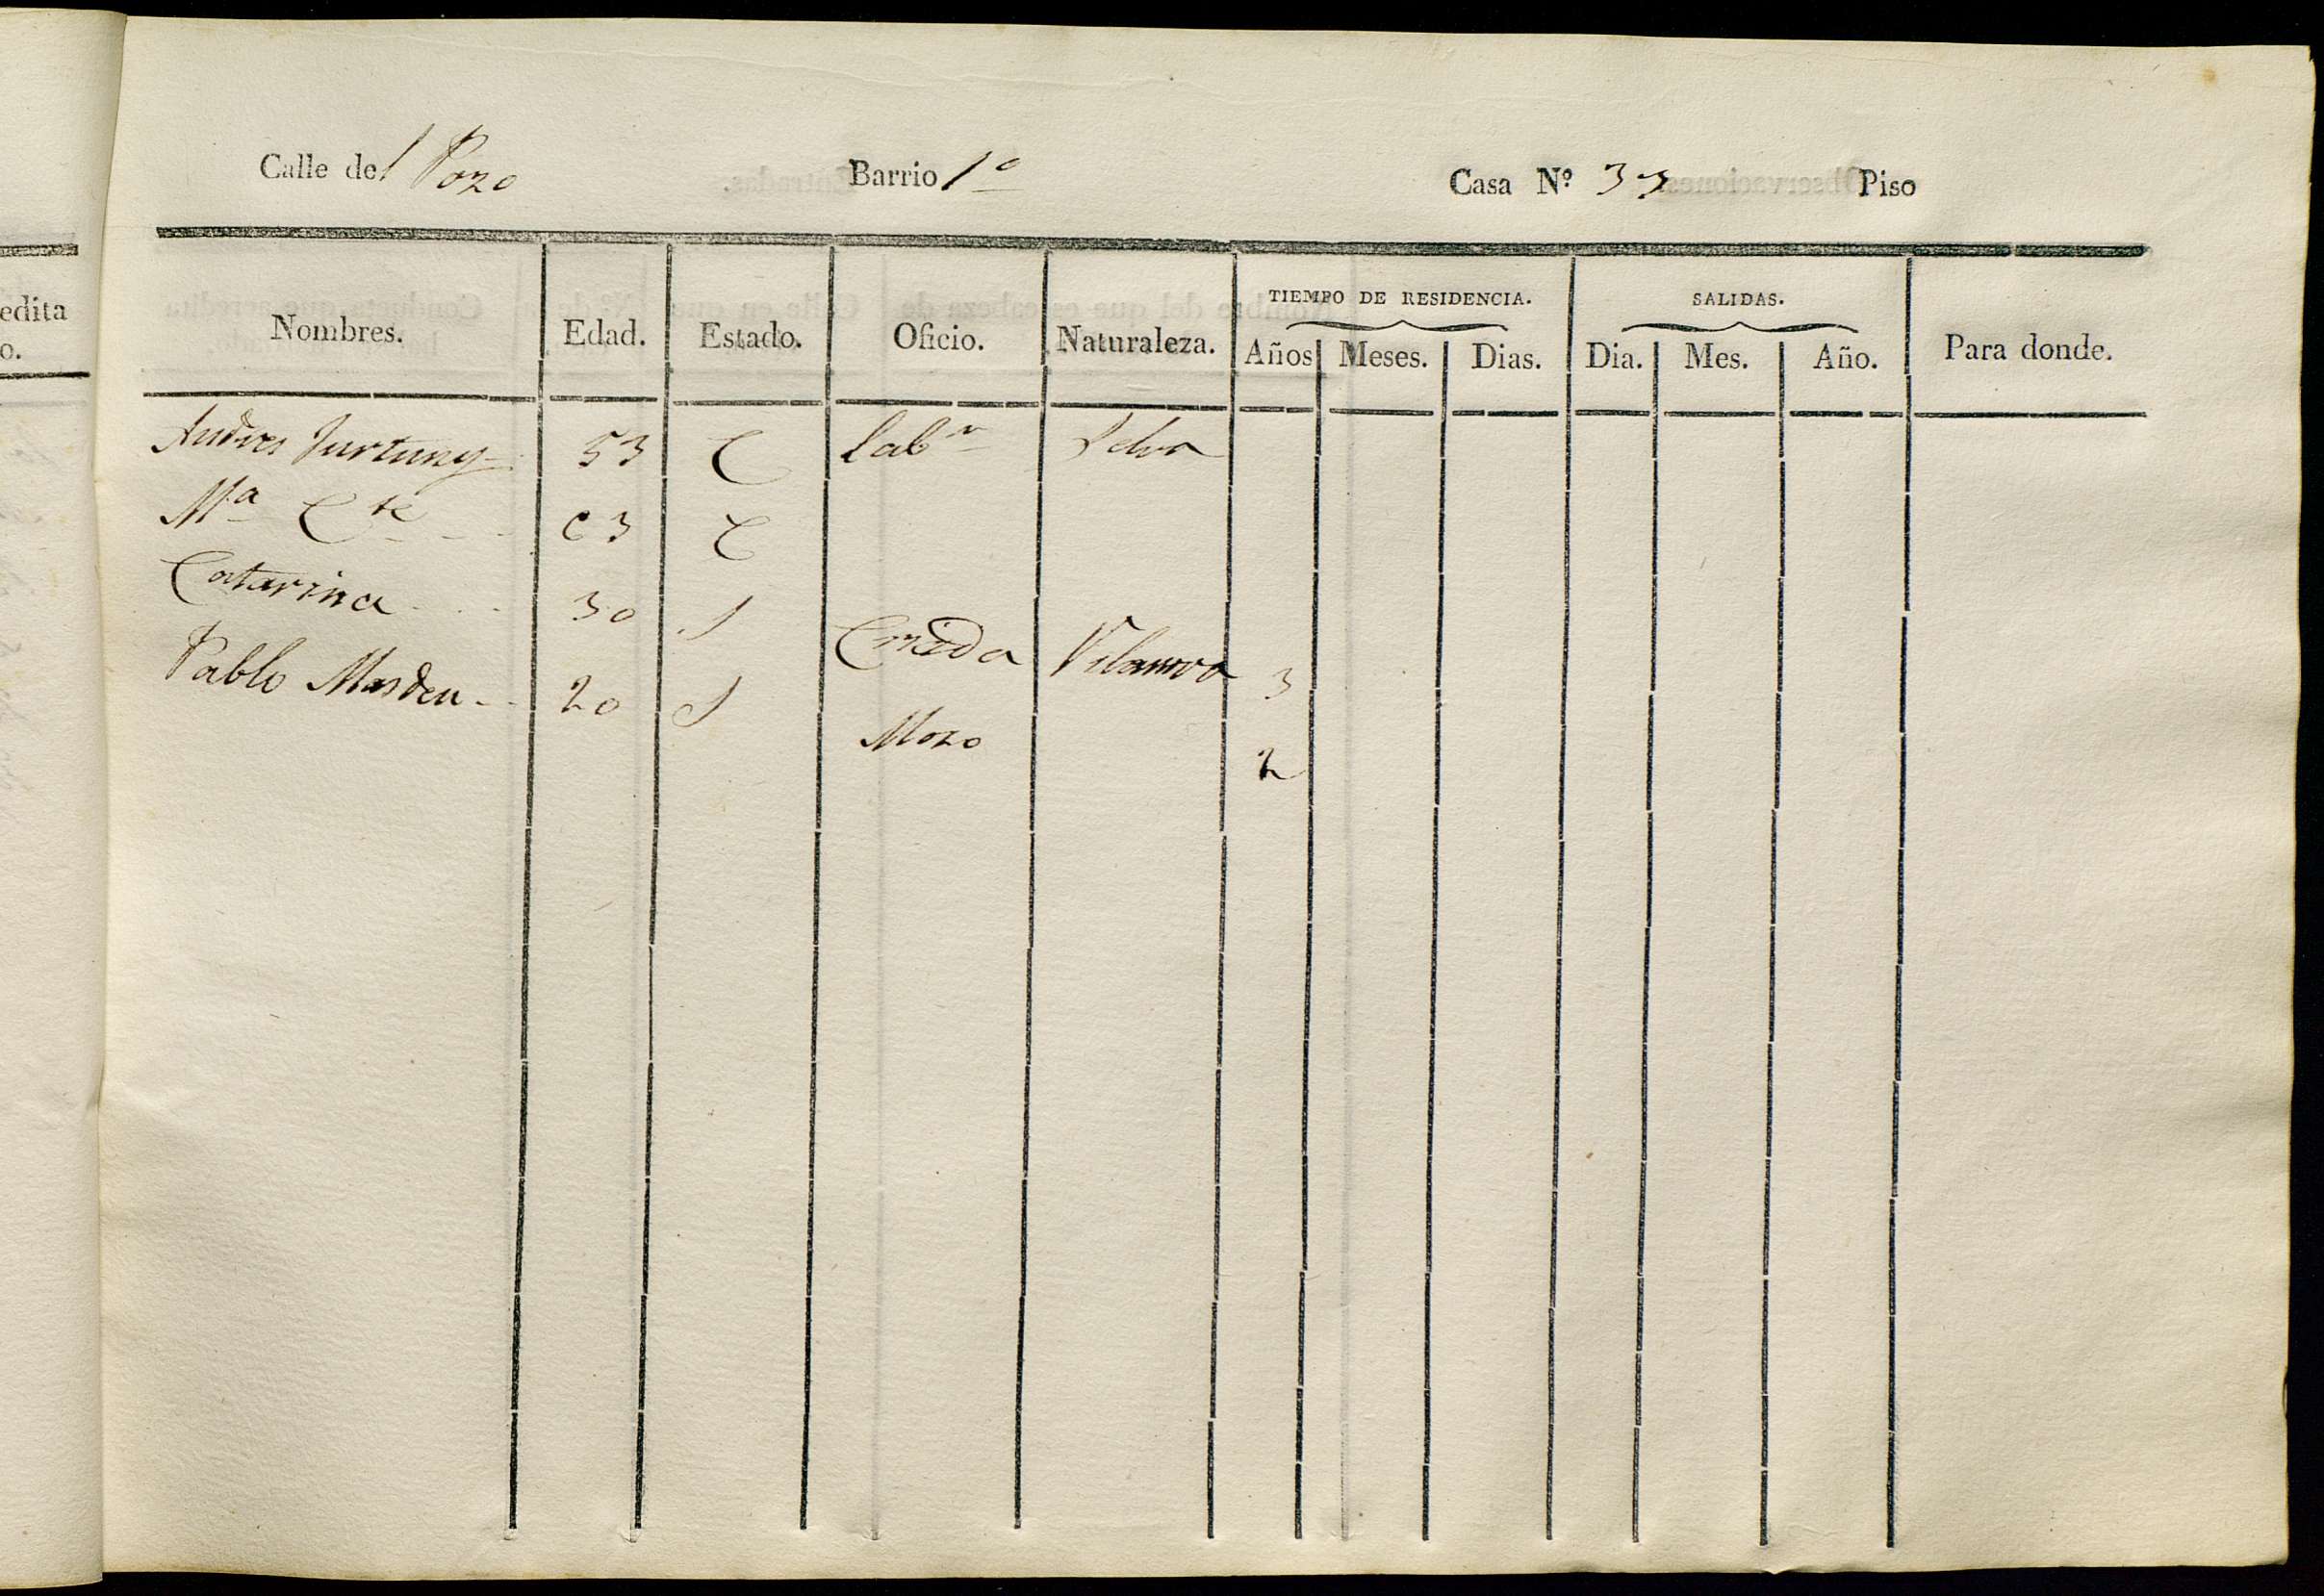 edita
o.
Calle del Pozo Barrio 1º Casa Nº 33 Piso
TIEMPO DE RESIDENCIA. SALIDAS.
Nombres. Edad. Estado. Oficio. Naturaleza. Años Meses. Dias. Dia. Mes. Año. Para donde.
Andres Furtuny 53 C Labr Selva
Mª Cte 63 C
Catarina 30 S Criada Vilanova 3
Pablo Masdeu 20 S Mozo 2